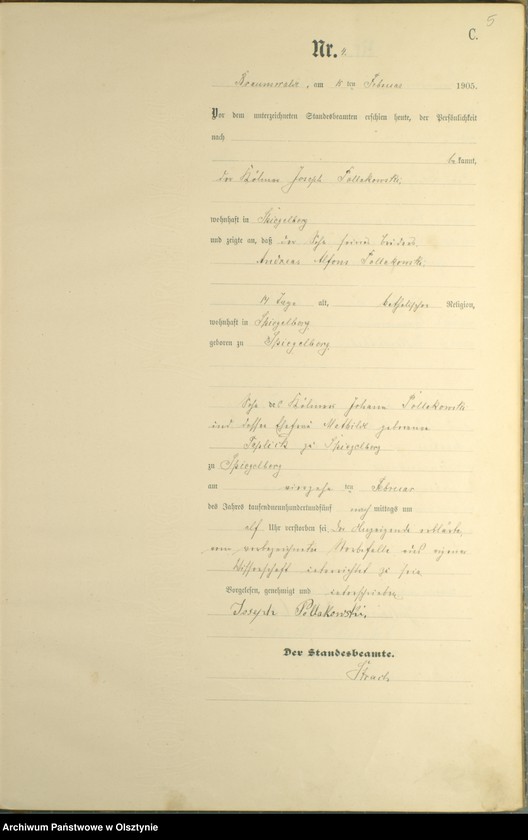 5
C.
Nr. 2.
am ten Februar 1905.
Vor dem unterzeichneten Standesbeamten erschien heute, der Persönlichkeit
nach
bekannt,
der Kölmer Joseph Pollakowski,
wohnhaft in Spiegelberg
und zeigte an, daß der Sohn seines Bruders
Andreas Alfons Pollakowski,
14 Tage alt, katholischer Religion,
wohnhaft in Spiegelberg
geboren zu Spiegelberg
Sohn des Kölmers Johann Pollakowski
und dessen Ehefrau Mathilde geborene
zu Spiegelberg
zu Spiegelberg
am vierzehn ten Februar
des Jahres tausendneunhundertundfünf nach mittags um
elf Uhr verstorben sei. Der Anzeigende erklärte,
von vorbezeichneten Sterbefalle aus eigener
Wissenschaft unterrichtet zu sein
Vorgelesen, genehmigt und unterschrieben
Joseph Pollakowski.
Der Standesbeamte.
Archiwum Państwowe w Olsztynie